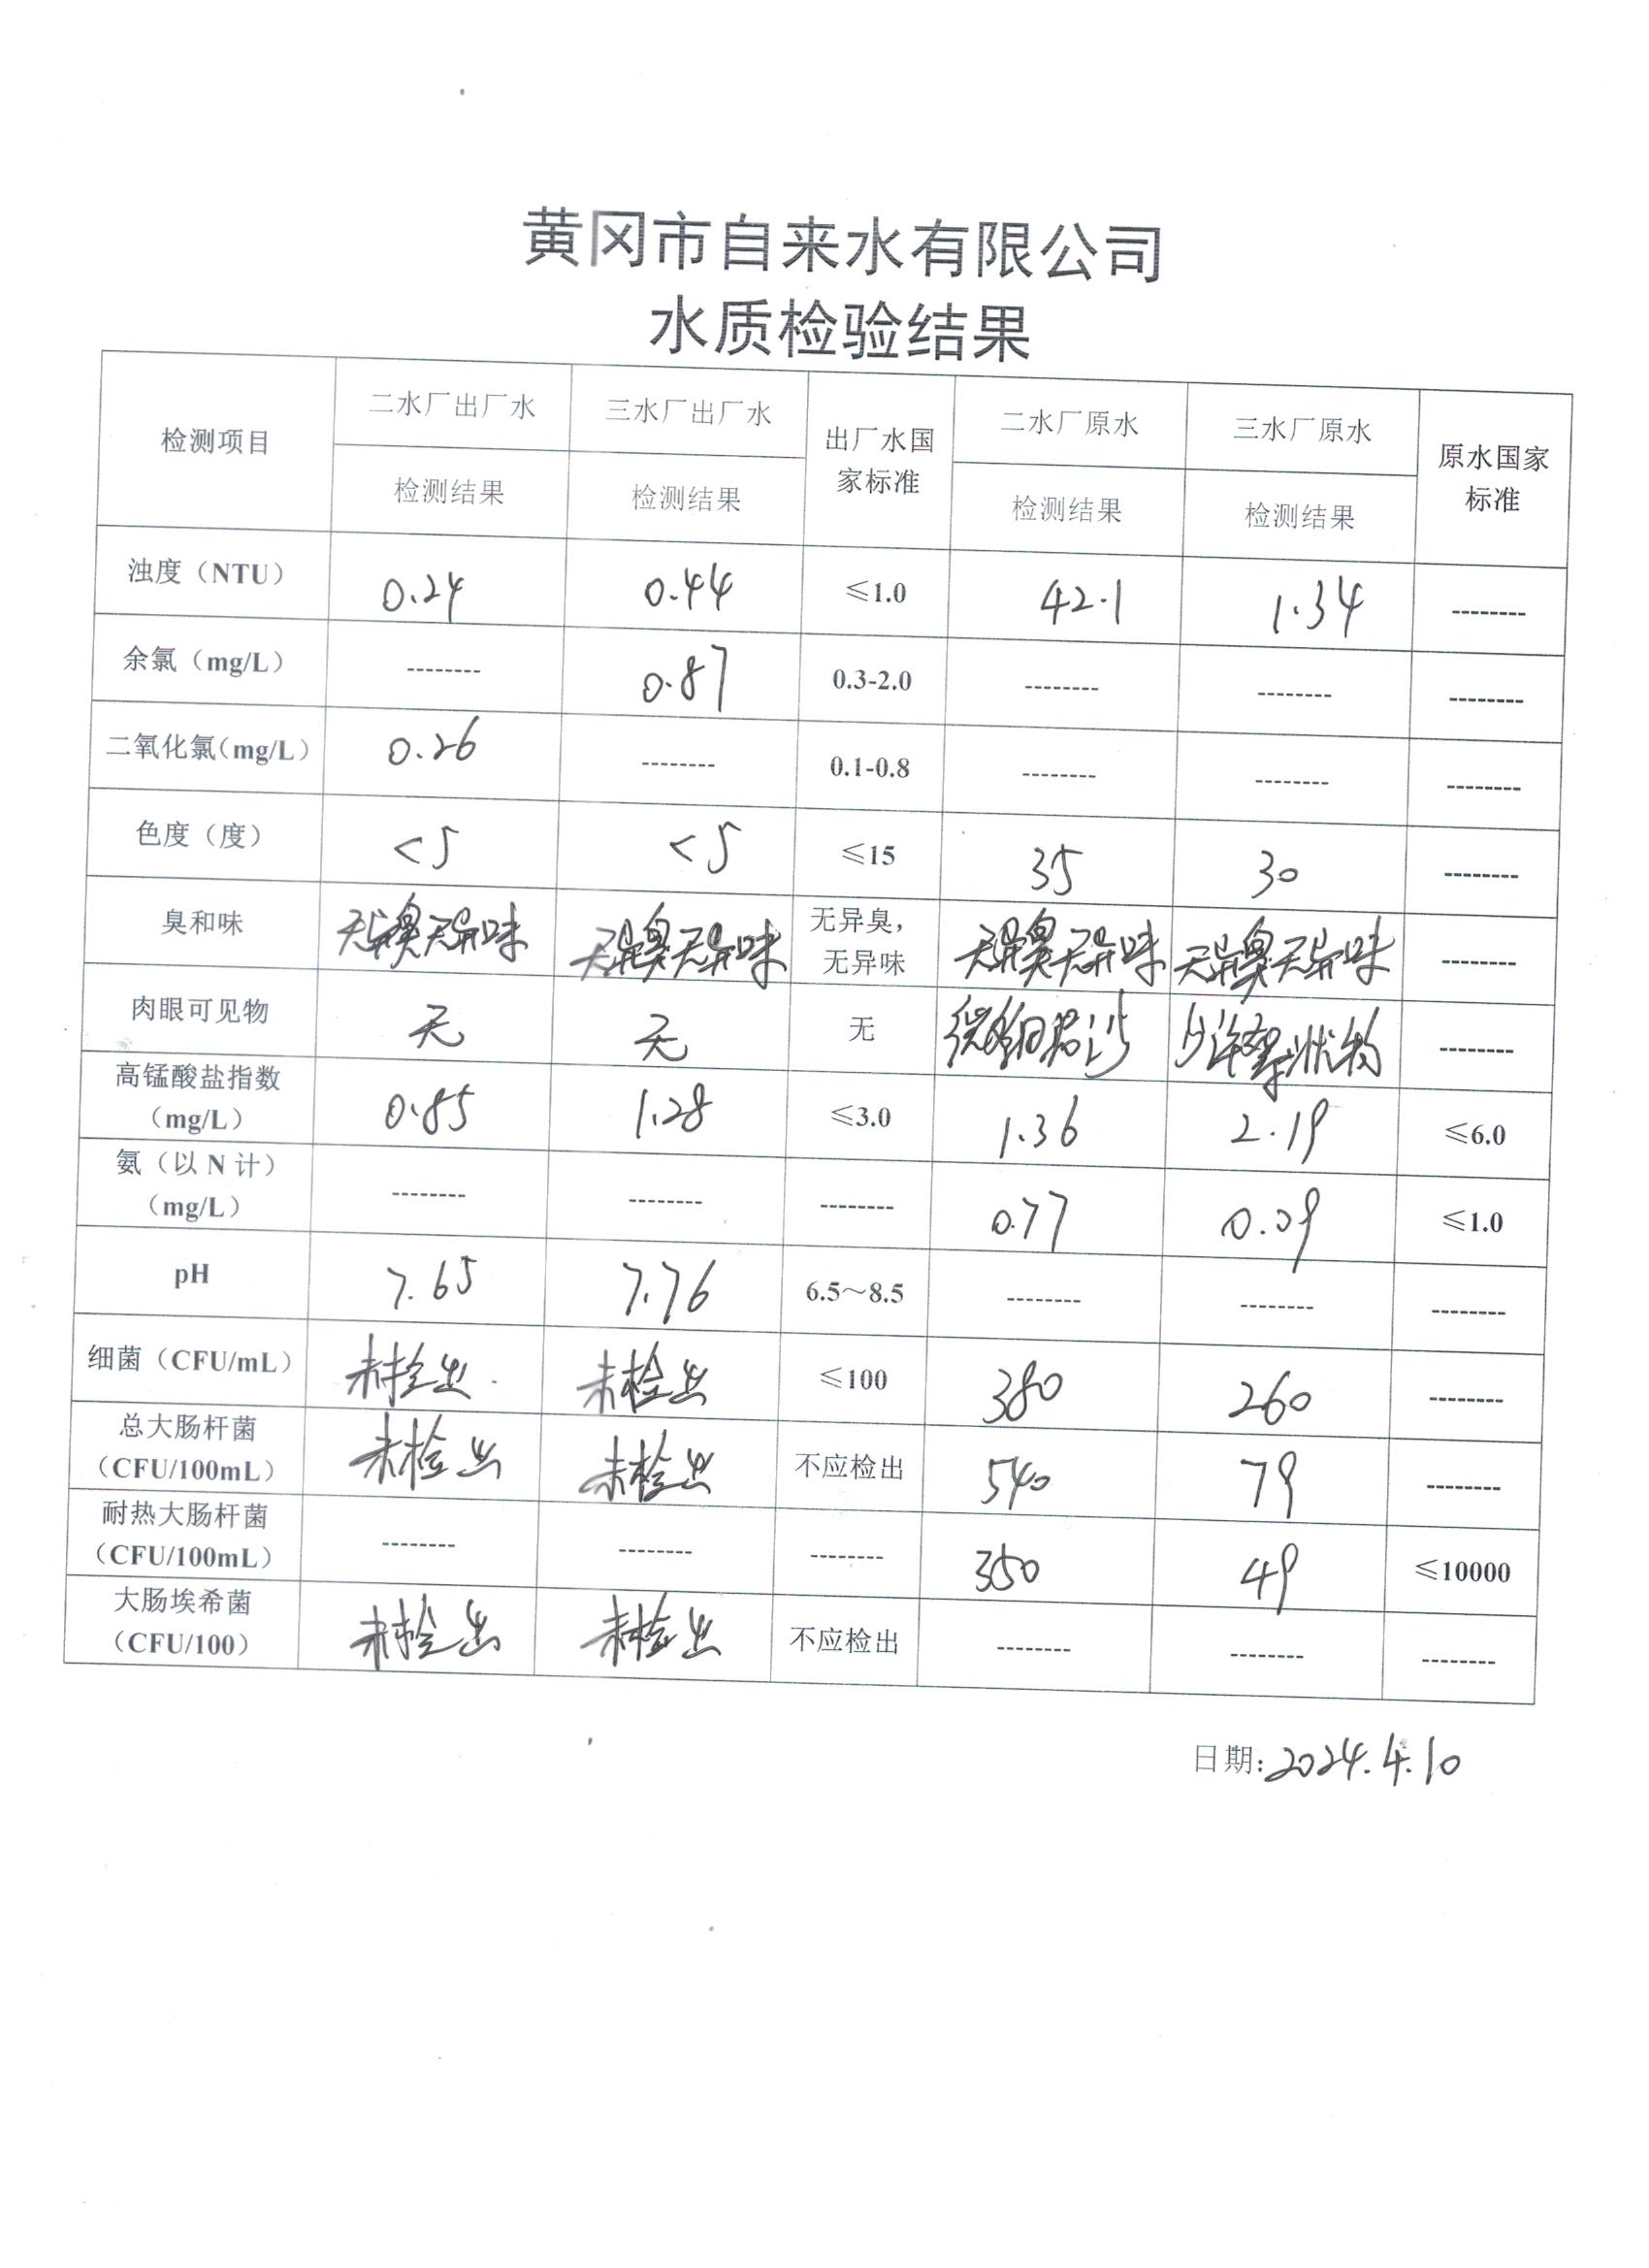 黄冈市自来水有限公司
水质检验结果
检测项目 二水厂出厂水 三水厂出厂水 出厂水国家标准 二水厂原水 三水厂原水 原水国家标准
检测结果 检测结果 检测结果 检测结果
浊度（NTU） 0.24 0.44 ≤1.0 42.1 1.34 --------
余氯（mg/L） -------- 0.87 0.3-2.0 -------- -------- --------
二氧化氯（mg/L） 0.26 -------- 0.1-0.8 -------- -------- --------
色度（度） <5 <5 ≤15 35 30 --------
臭和味 无异臭无异味 无异臭无异味 无异臭，无异味 无异臭无异味 无异臭无异味 --------
肉眼可见物 无 无 无 微细泥沙 少许絮状物 --------
高锰酸盐指数（mg/L） 0.85 1.28 ≤3.0 1.36 2.19 ≤6.0
氨（以 N 计）（mg/L） -------- -------- -------- 0.77 0.09 ≤1.0
pH 7.65 7.76 6.5～8.5 -------- -------- --------
细菌（CFU/mL） 未检出 未检出 ≤100 380 260 --------
总大肠杆菌（CFU/100mL） 未检出 未检出 不应检出 540 79 --------
耐热大肠杆菌（CFU/100mL） -------- -------- -------- 350 49 ≤10000
大肠埃希菌（CFU/100） 未检出 未检出 不应检出 -------- -------- --------
日期：2024.4.10